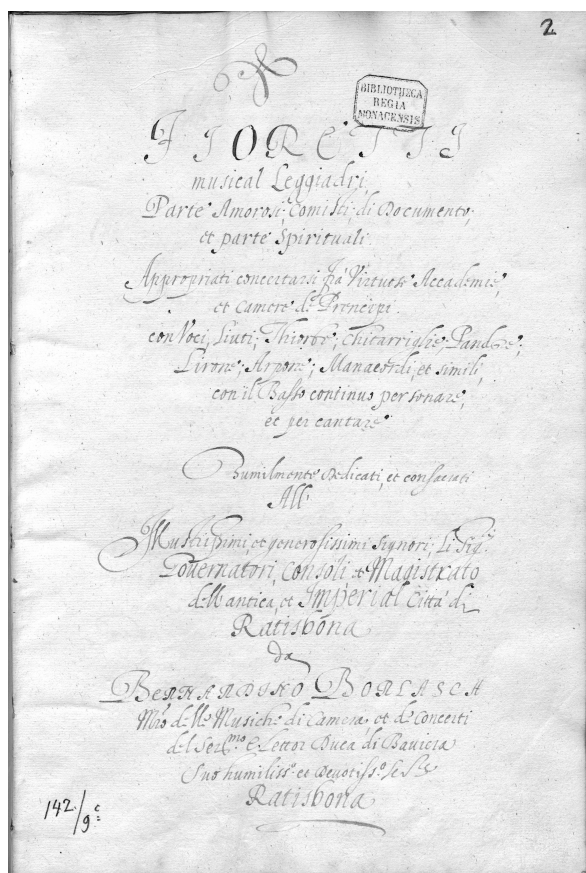 2
BIBLIOTHECA
REGIA
MONACENSIS
FIORETTI
musical Leggiadri,
Parte Amorosi, Comisti, di Documento,
et parte Spirituali.
Appropriati conecitarsi frà Virtuose Accademie,
et camere de Prencipi.
con Voci, Liuti, Thiorbe, Chitarriglie, Pandore,
Lirone, Arpone, Manacordi, et simili,
con il Basso continuo per sonare,
et per cantare
Humilmente Dedicati, et consacrati
All
Illustrissimi, et generosissimi Signori, Li Sig.ri
Governatori, Consoli, et Magistrato
dell antica, et Imperial Città di
Ratisbona
da
BERNARDINO BORLASCA
Mro delle Musiche di Camera, et de Concerti
del Ser.mo Elettor Duca di Baviera
Suo humiliss.o et Devotiss.o
Ratisbona
142/9c